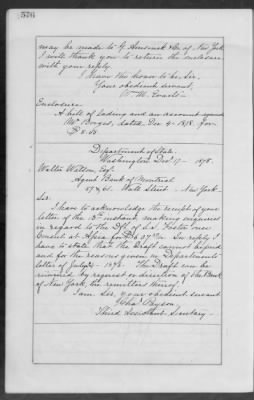 576
may be made to G. Amsinck & Co. of New York
I will thank you to return the enclosure
with your reply.
I have the honor to be, Sir,
Your obedient servant,
Wm. M. Evarts
Enclosure
A bill of lading and an account
Mr. Borges, dated Dec 4. 1878. for
Department of State.
Washington Dec. 17 - 1878.
Walter Watson, Esqr.
Agent Bank of Montreal
59 & 61. Wall Street - New York -
Sir:
I have to acknowledge the receipt of your
letter of the 13th instant, making inquiries
in regard to the Dft. of S. S. Foster once
Consul at Apia for In reply I
have to state that the Draft cannot be paid
and for the reasons given in Department's
letter of July 1878. The Draft can be
returned by request or direction of the Bank
of New York, the remitters thereof.
I am, Sir, your obedient servant
Chas. Payson,
Third Assistant Secretary -